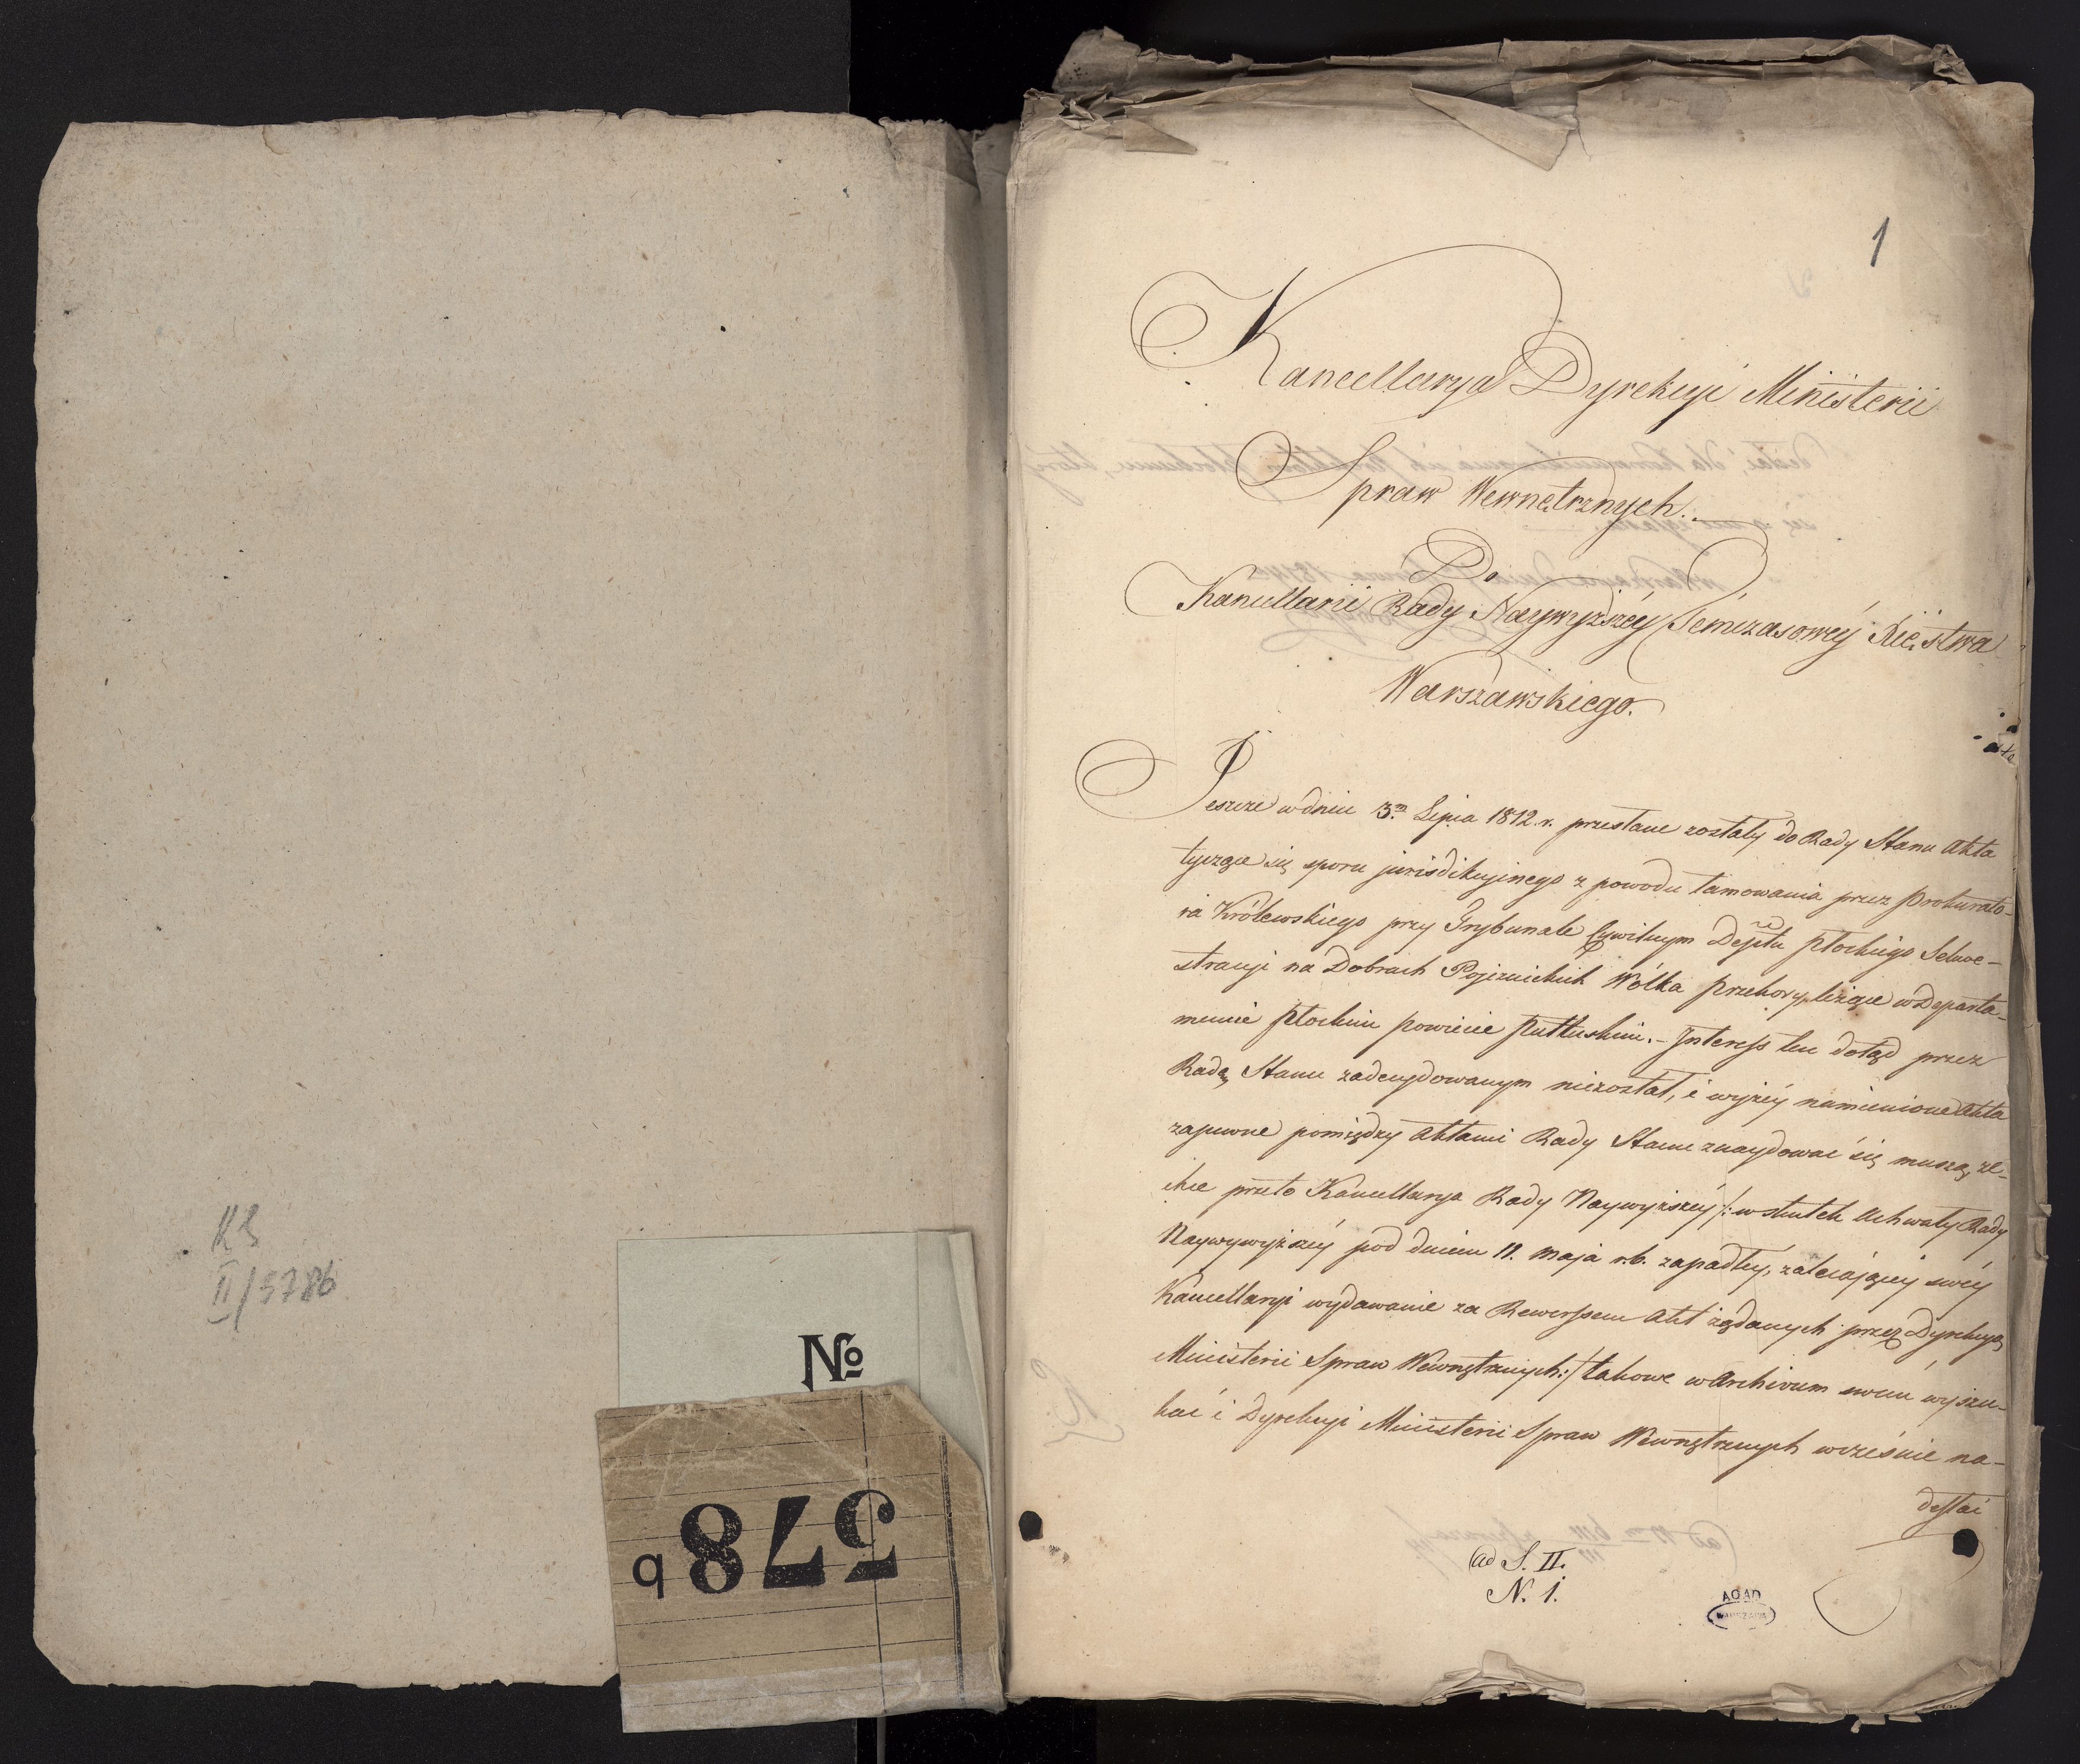 RS
II/5786
№
578
b
1
Kancellarya Dyrekcyi Ministerii
Spraw Wewnętrznych.
Do
Kancellarii Rady Naywyższéy Témczasowéy Xięstwa
Warszawskiego.
Jeszcze w dniu 3.m Lipca 1812 r. przesłane zostały do Rady Stanu Akta
tyczące się sporu jurisdikcyinego z powodu tamowania przez Prokurato-
ra Królewskiego przy Trybunale Cywilnym Deptu Płockiego Sekwe-
stracyi na Dobrach Pojezuickich Wólka Przekory, leżące w Departa-
mencie Płockim powiecie Pułtuskim. – Interess ten dotąd przez
Radę Stanu zadecydowanym niezostał, i wyżéy namienione Akta
zapewne pomiędzy Aktami Rady Stanu znaydować się muszą, ze-
chce przeto Kancellarya Rady Naywyższéy /: w skutek Uchwały Rady
Naywywyższéy pod dniem 11. Maja r.b. zapadłey, zalecającey swéy
Kancellaryi wydawanie za Rewerssem Akt żądanych przez Dyrekcyą
Ministerii Spraw Wewnętrznych :/ takowe w Archivum swem wyszu-
kać i Dyrekcyi Ministerii Spraw Wewnętrznych wcześnie na-
desłać
ad S. II.
N. 1.
AGAD
WARSZAWA